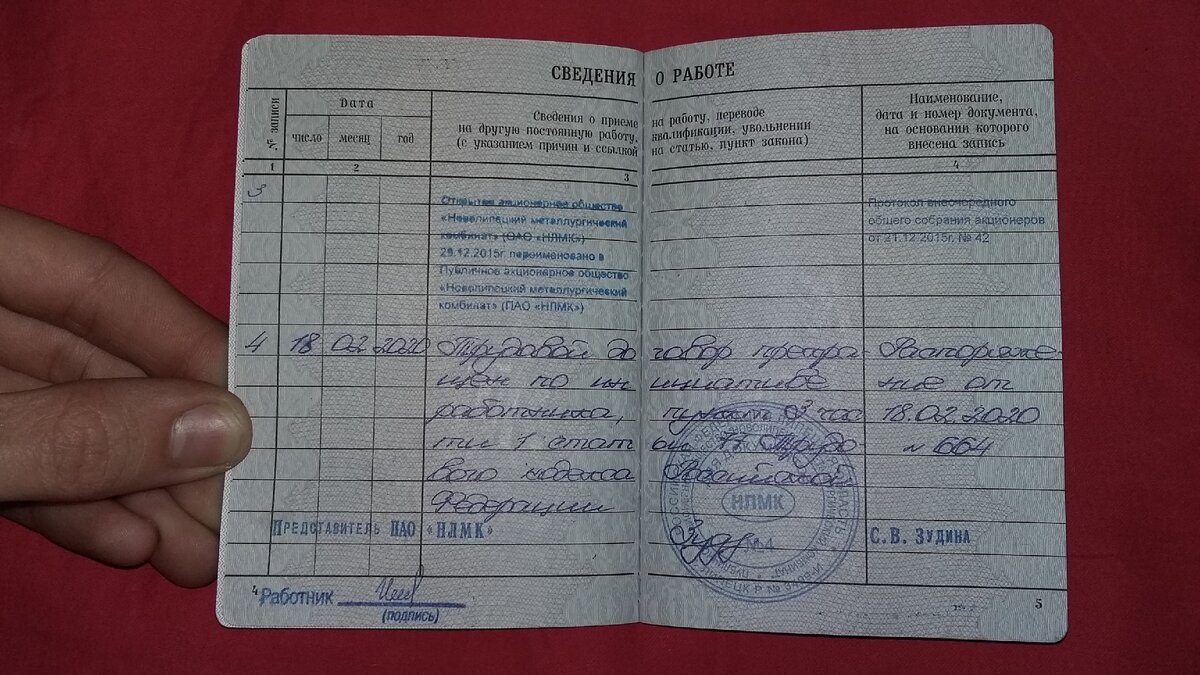 СВЕДЕНИЯ О РАБОТЕ
№ записи
Дата
число месяц год
Сведения о приеме на работу, переводе
на другую постоянную работу, квалификации, увольнении
(с указанием причин и ссылкой на статью, пункт закона)
Наименование,
дата и номер документа,
на основании которого
внесена запись
1 2 3 4
3
Открытое акционерное общество
«Новолипецкий металлургический
комбинат» (ОАО «НЛМК»)
29.12.2015г. переименовано в
Публичное акционерное общество
«Новолипецкий металлургический
комбинат» (ПАО «НЛМК»)
Протокол внеочередного
общего собрания акционеров
от 21.12.2015г. № 42
4 18 02 2020 Трудовой договор прекра- Распоряже-
щен по инициативе ние от
работника, пункт 3 час 18.02.2020
ти 1 статьи 77 Трудо № 664
вого кодекса Российской
Федерации
НЛМК
№4
Представитель ПАО «НЛМК» С.В. Зудина
4 Работник
(подпись)
5